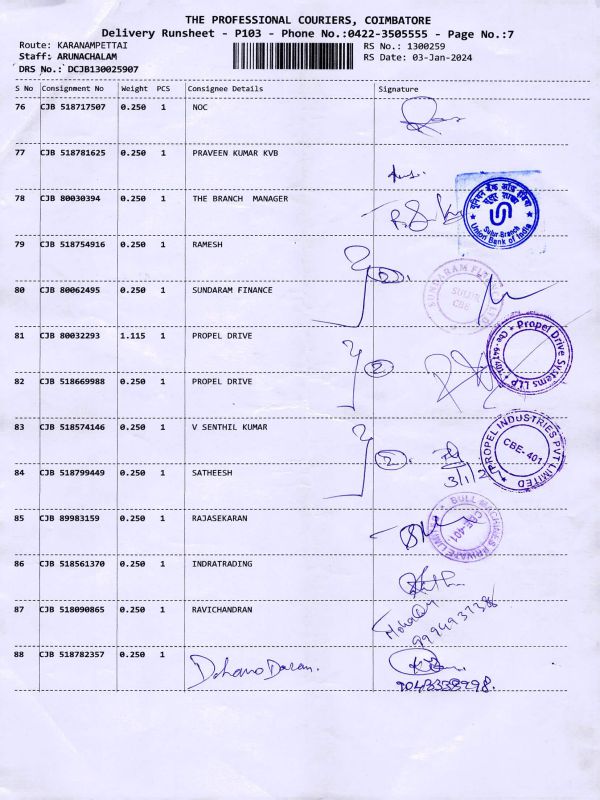 THE PROFESSIONAL COURIERS, COIMBATORE
Delivery Runsheet - P103 - Phone No.:0422-3505555 - Page No.:7
Route: KARANAMPETTAI
RS No.: 1300259
Staff: ARUNACHALAM
RS Date: 03-Jan-2024
DRS No.: DCJB130025907
S No Consignment No Weight PCS Consignee Details Signature
76 CJB 518717507 0.250 1 NOC
77 CJB 518781625 0.250 1 PRAVEEN KUMAR KVB
78 CJB 80030394 0.250 1 THE BRANCH MANAGER
यूनियन बैंक ऑफ इंडिया
सुलूर शाखा
Sulur Branch
Union Bank of India
79 CJB 518754916 0.250 1 RAMESH
2
80 CJB 80062495 0.250 1 SUNDARAM FINANCE
SUNDARAM
SULUR
CBE
81 CJB 80032293 1.115 1 PROPEL DRIVE
2
Propel Drive Systems LLP
82 CJB 518669988 0.250 1 PROPEL DRIVE
83 CJB 518574146 0.250 1 V SENTHIL KUMAR
2
PROPEL INDUSTRIES PVT LIMITED
CBE-401
84 CJB 518799449 0.250 1 SATHEESH
3/1/2
85 CJB 89983159 0.250 1 RAJASEKARAN
BULL MACHINES PRIVATE LIMITED
CBE-401
86 CJB 518561370 0.250 1 INDRATRADING
87 CJB 518090865 0.250 1 RAVICHANDRAN
88 CJB 518782357 0.250 1